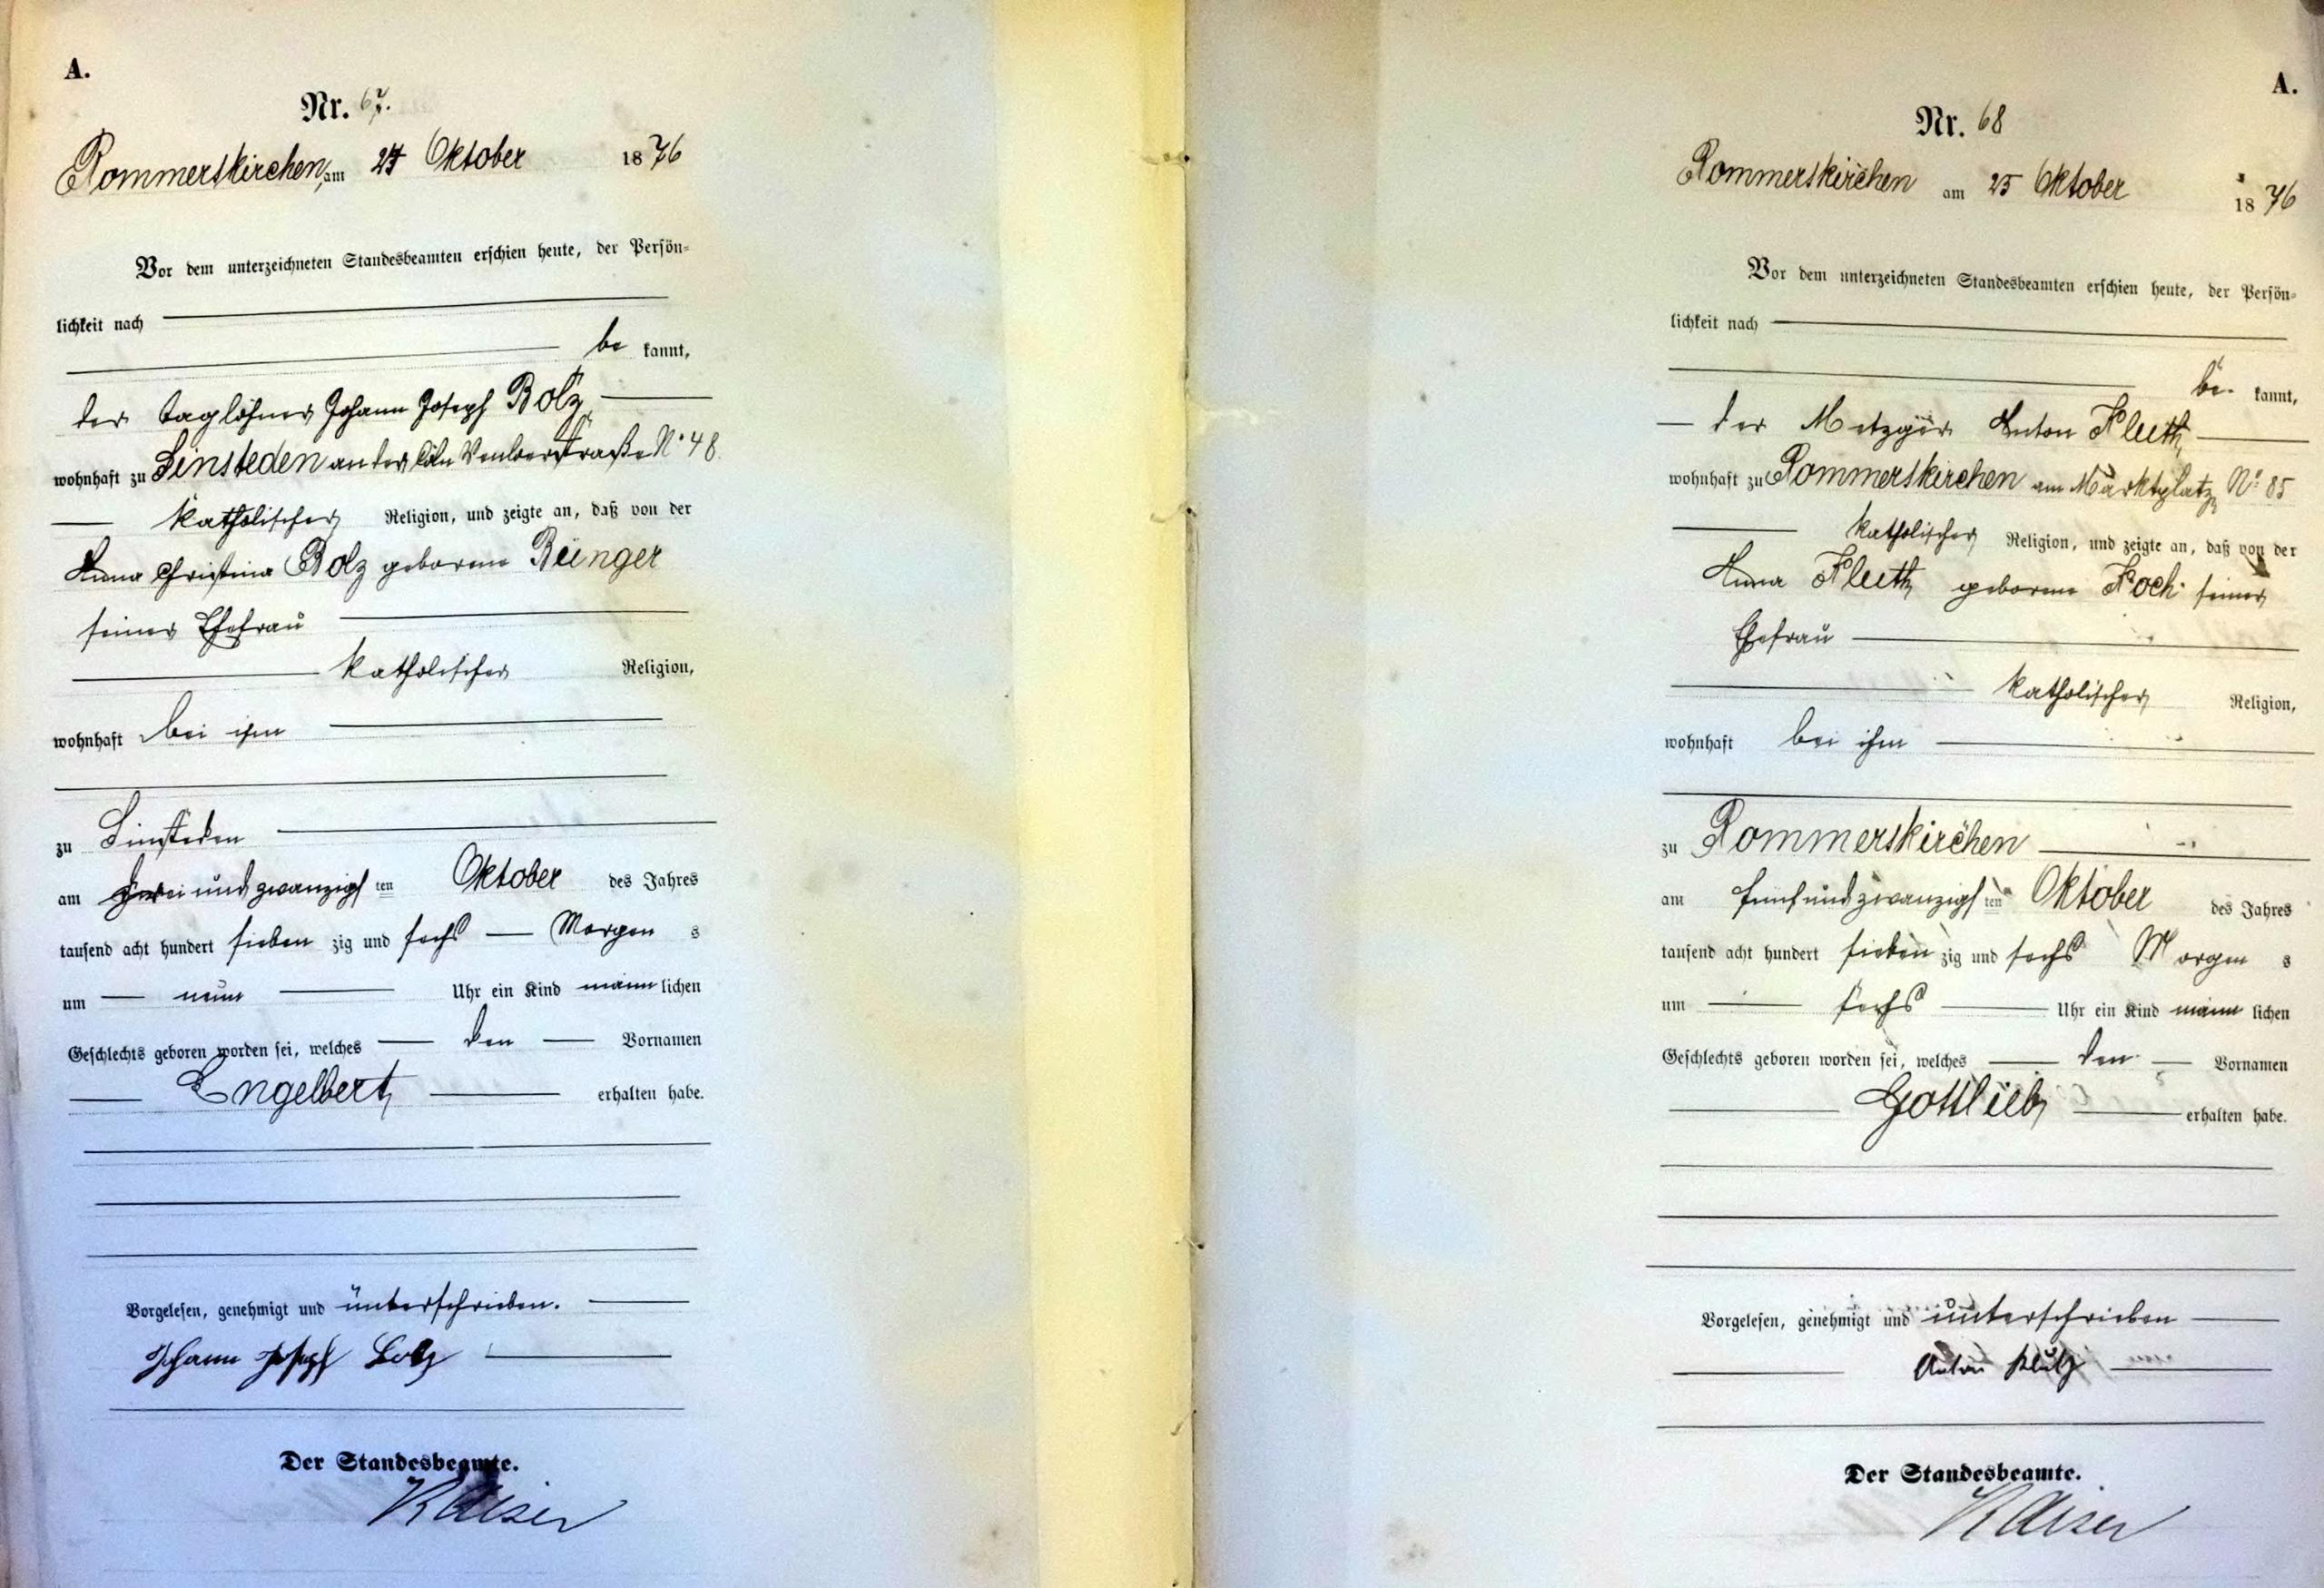 A.
Nr. 67.
Rommerskirchen, am Oktober 1876
Vor dem unterzeichneten Standesbeamten erschien heute, der Persön-
lichkeit nach
be kannt,
der Taglöhner Johann Joseph Bolz,
wohnhaft zu Sinsteden an der Cöln Venloerstraße N° 48
katholischer Religion, und zeigte an, daß von der
Anna Christina Bolz geborene Bünger
seiner Ehefrau
katholischer Religion,
wohnhaft bei ihm
zu Sinsteden
am undzwanzigsten Oktober des Jahres
tausend acht hundert sieben zig und sechs Morgen s
um neun Uhr ein Kind männlichen
Geschlechts geboren worden sei, welches den Vornamen
Engelbert, erhalten habe.
Vorgelesen, genehmigt und unterschrieben.
Johann Joseph Bolz
Der Standesbeamte.
Kaiser
A.
Nr. 68
Rommerskirchen am 25 Oktober 1876
Vor dem unterzeichneten Standesbeamten erschien heute, der Persön-
lichkeit nach
be kannt,
der Metzger Anton Kluth,
wohnhaft zu Rommerskirchen am Marktplatz, N° 85
katholischer Religion, und zeigte an, daß von der
Anna Kluth, geborene Koch seiner
Ehefrau
katholischer Religion,
wohnhaft bei ihm
zu Rommerskirchen
am fünfundzwanzigsten Oktober des Jahres
tausend acht hundert sieben zig und sechs Morgen s
um sechs Uhr ein Kind männlichen
Geschlechts geboren worden sei, welches den Vornamen
Gottlieb, erhalten habe.
Vorgelesen, genehmigt und unterschrieben
Anton
Der Standesbeamte.
Kaiser